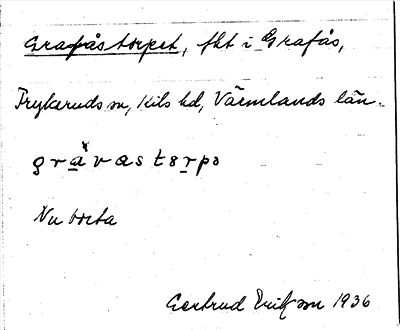 Grafåstorpet, fht i Grafås,
Frykeruds sn, Kils hd, Värmlands län.
grávastɵrpə
Nu borta
Gertrud Erikson 1936